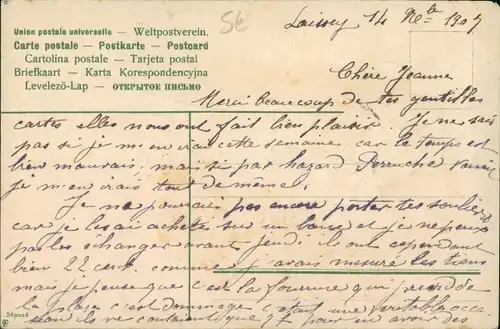 Union postale universelle — Weltpostverein.
Carte postale — Postkarte — Postcard
Cartolina postale — Tarjeta postal
Briefkaart — Karta Korespondencyjna
Levelező-Lap — ОТКРЫТОЕ ПИСЬМО
14 9bre 1907
Chère Jeanne
Merci beaucoup de tes gentilles
cartes elles nous ont fait bien plaisir. Je ne sais
pas si je m'en irai cette semaine car le temps est
bien mauvais, mais si par hazard Perruche
je m'en irais tout de même.
Je ne pourrais pas encore porter tes souliers
car je les ai achetés sur un banc et je ne peux
pas les échanger avant jeudi. Ils ont cependant
bien 22 cent. comme j'avais mesuré les tiens
mais je pense que c'est la fourrure qui prend de
la place c'est dommage c'était une véritable occa
sion ils ne coutaient que
Déposé